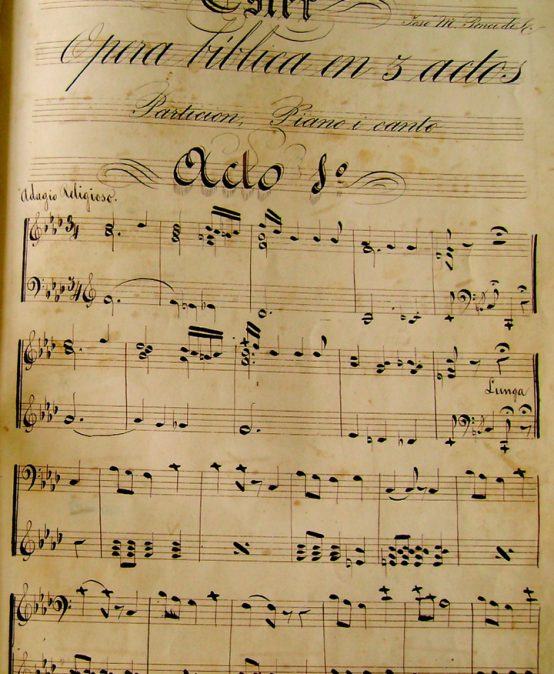 Ester
Jose M. Ponce de L.
Opera bíblica en 3 actos
Particion, Piano i canto
Acto 1º
Adagio Religioso.
Lunga